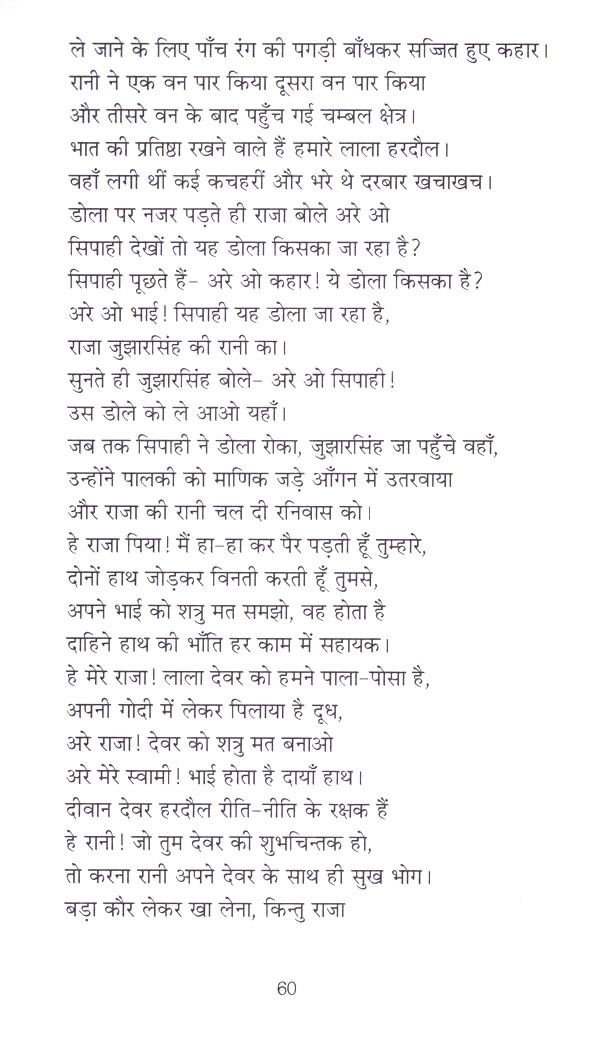 ले जाने के लिए पाँच रंग की पगड़ी बाँधकर सज्जित हुए कहार।
रानी ने एक वन पार किया दूसरा वन पार किया
और तीसरे वन के बाद पहुँच गई चम्बल क्षेत्र।
भात की प्रतिष्ठा रखने वाले हैं हमारे लाला हरदौल।
वहाँ लगी थीं कई कचहरीं और भरे थे दरबार खचाखच।
डोला पर नजर पड़ते ही राजा बोले अरे ओ
सिपाही देखों तो यह डोला किसका जा रहा है?
सिपाही पूछते हैं- अरे ओ कहार! ये डोला किसका है?
अरे ओ भाई! सिपाही यह डोला जा रहा है,
राजा जुझारसिंह की रानी का।
सुनते ही जुझारसिंह बोले- अरे ओ सिपाही!
उस डोले को ले आओ यहाँ।
जब तक सिपाही ने डोला रोका, जुझारसिंह जा पहुँचे वहाँ,
उन्होंने पालकी को माणिक जड़े आँगन में उतरवाया
और राजा की रानी चल दी रनिवास को।
हे राजा पिया! मैं हा-हा कर पैर पड़ती हूँ तुम्हारे,
दोनों हाथ जोड़कर विनती करती हूँ तुमसे,
अपने भाई को शत्रु मत समझो, वह होता है
दाहिने हाथ की भाँति हर काम में सहायक।
हे मेरे राजा! लाला देवर को हमने पाला-पोसा है,
अपनी गोदी में लेकर पिलाया है दूध,
अरे राजा! देवर को शत्रु मत बनाओ
अरे मेरे स्वामी! भाई होता है दायाँ हाथ।
दीवान देवर हरदौल रीति-नीति के रक्षक हैं
हे रानी! जो तुम देवर की शुभचिन्तक हो,
तो करना रानी अपने देवर के साथ ही सुख भोग।
बड़ा कौर लेकर खा लेना, किन्तु राजा
60